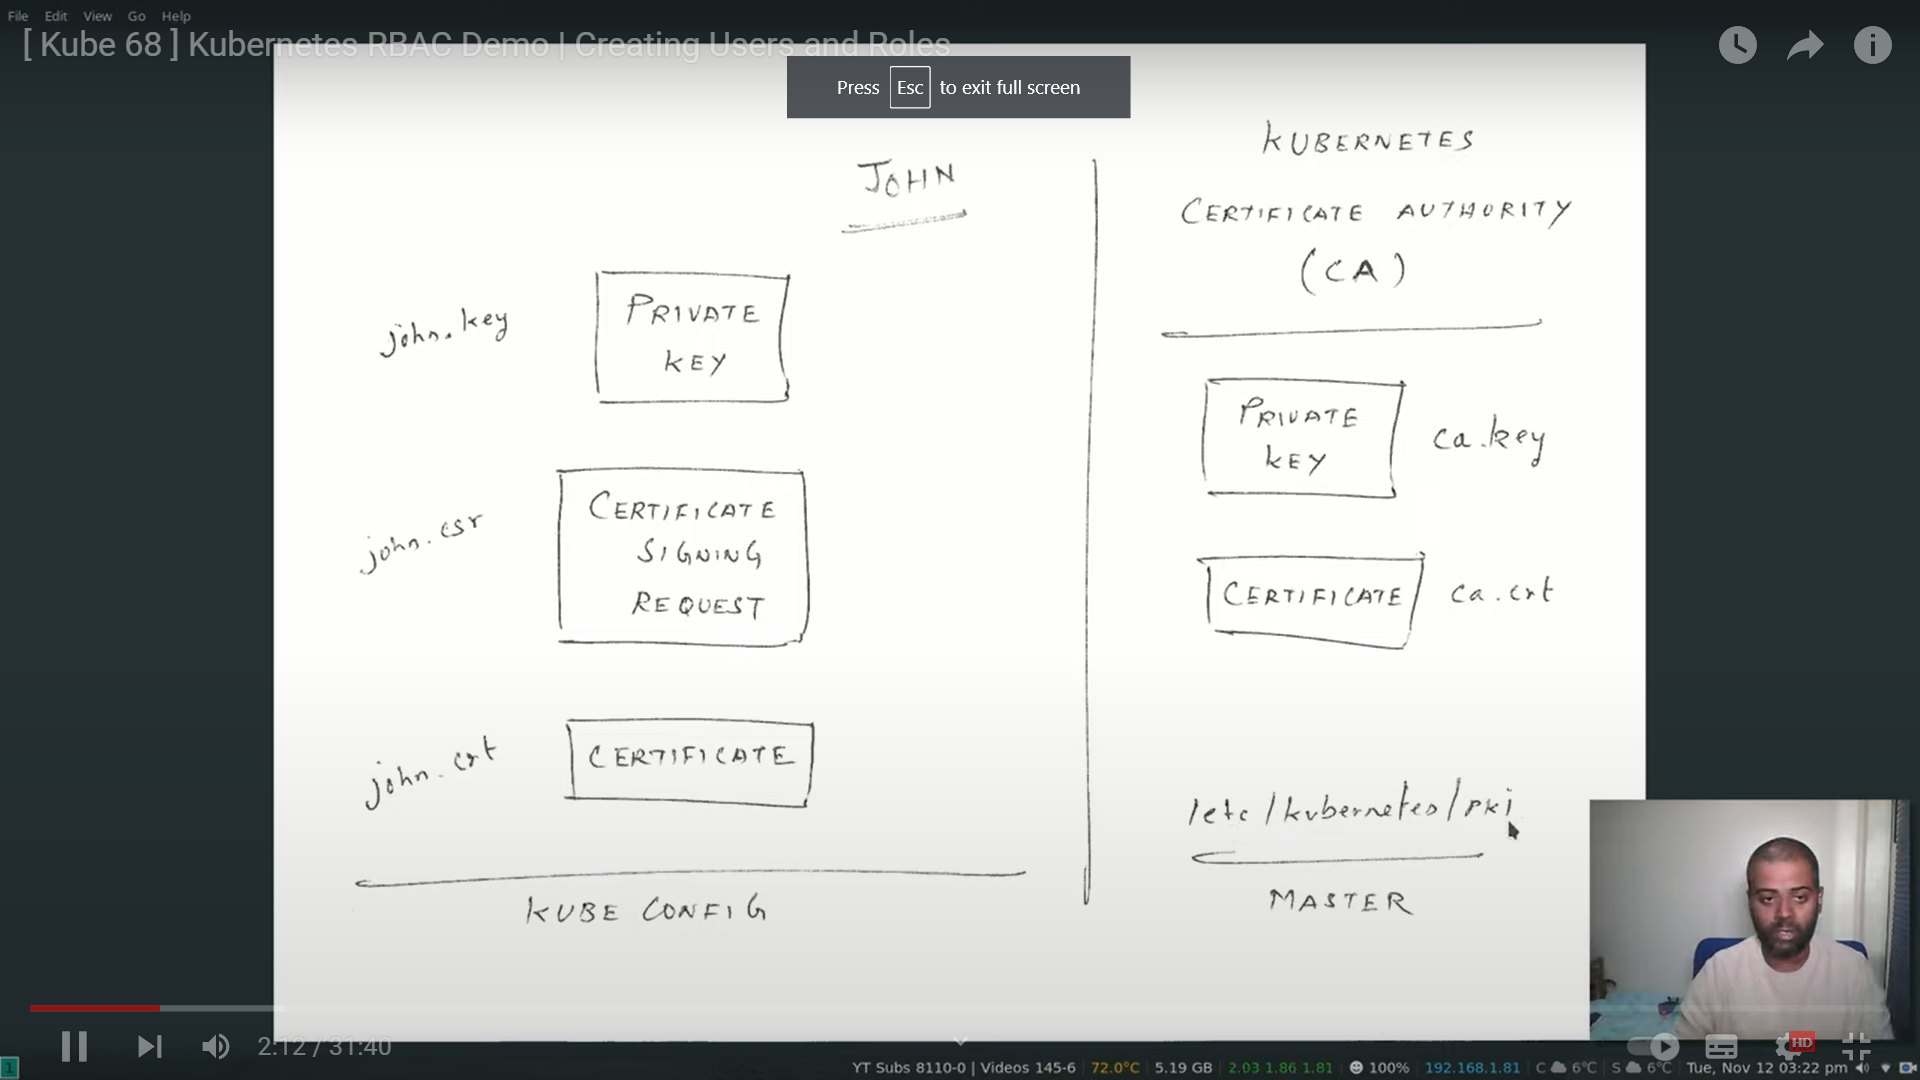 File Edit View Go Help
[ Kube 68 ] Kubernetes RBAC Demo | Creating Users and Roles
Press Esc to exit full screen
JOHN
john.key
PRIVATE
KEY
john.csr
CERTIFICATE
SIGNING
REQUEST
john.crt
CERTIFICATE
KUBE CONFIG
KUBERNETES
CERTIFICATE AUTHORITY
(CA)
PRIVATE
KEY
ca.key
CERTIFICATE
ca.crt
/etc/kubernetes/pki
MASTER
2:12 / 31:40
HD
1
YT Subs 8110-0 | Videos 145-6 72.0°C 5.19 GB 2.03 1.86 1.81 100% 192.168.1.81 C 6°C S 6°C Tue, Nov 12 03:22 pm